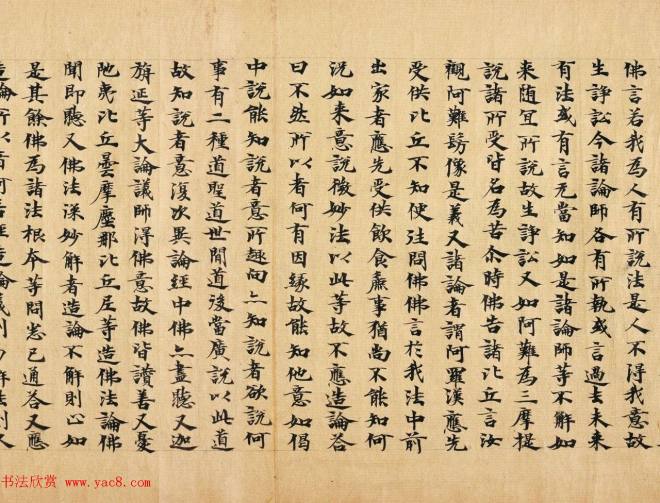 佛言若我為人有所說法是人不得我意故
生諍訟今諸論師各有所執或言過去未來
有法或有言无當知如是諸論師等不解如
来随宜所說故生諍訟又如阿難為三摩提
說諸所受皆名為苦尒時佛告諸比丘言汝
觀阿難髣像是義又諸論者謂阿羅漢應先
受供比丘不知便往問佛佛言於我法中前
出家者應先受供飲食麁事猶尚不能知何
況如来意說微妙法以此等故不應造論荅
曰不然所以者何有因緣故能知他意如偈
中說能知說者意所趣向亦知說者欲說何
事有二種道聖道世間道後當廣說以此道
故知說者意復次異論經中佛亦盡聽又迦
旃延等大論議師得佛意故佛皆讚善又憂
陁夷比丘曇摩塵那比丘尼等造佛法論佛
聞即聽又佛法深妙解者造論不解則止如
是其餘佛為諸法根本等問悉已通荅又應
造論所以者何若經造論義則易解法則久
书法欣赏 www.yac8.com